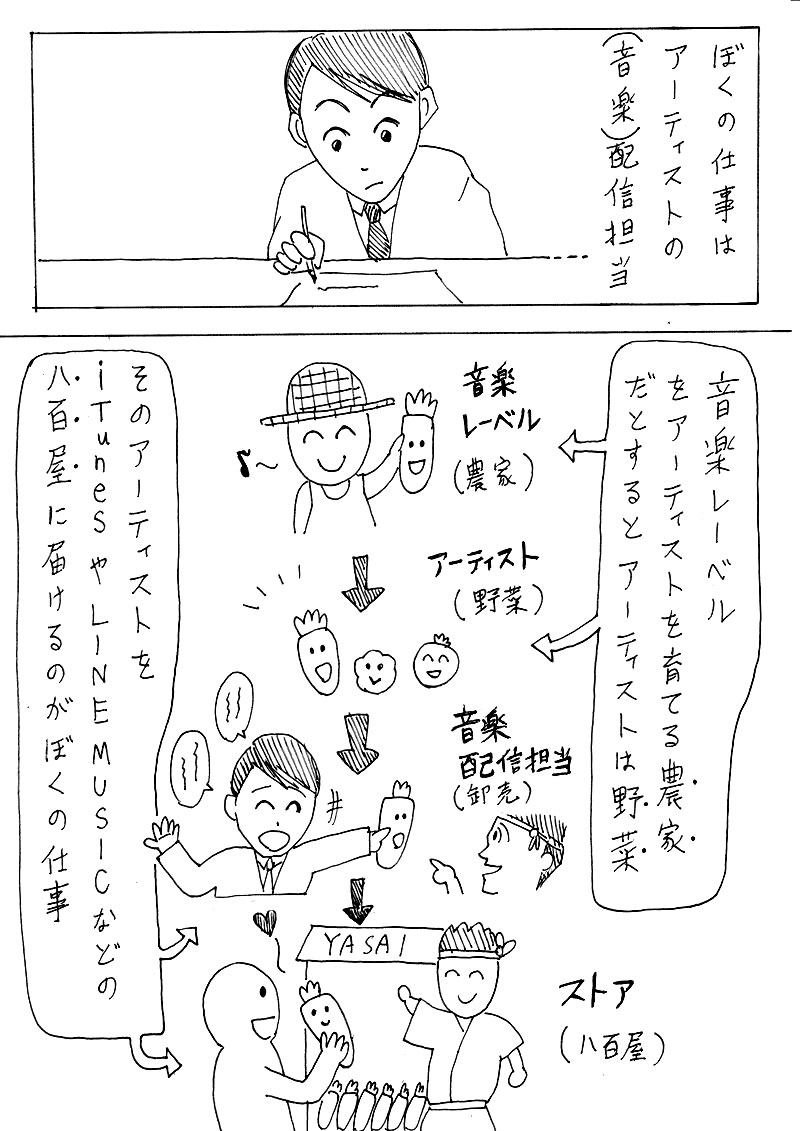 ぼくの仕事は
アーティストの
(音楽)配信担当
音楽レーベル
をアーティストを育てる農家
だとするとアーティストは野菜
音楽
レーベル
(農家)
アーティスト
(野菜)
音楽
配信担当
(卸売)
そのアーティストを
iTunesやLINE MUSICなどの
八百屋に届けるのがぼくの仕事
YASAI
ストア
(八百屋)